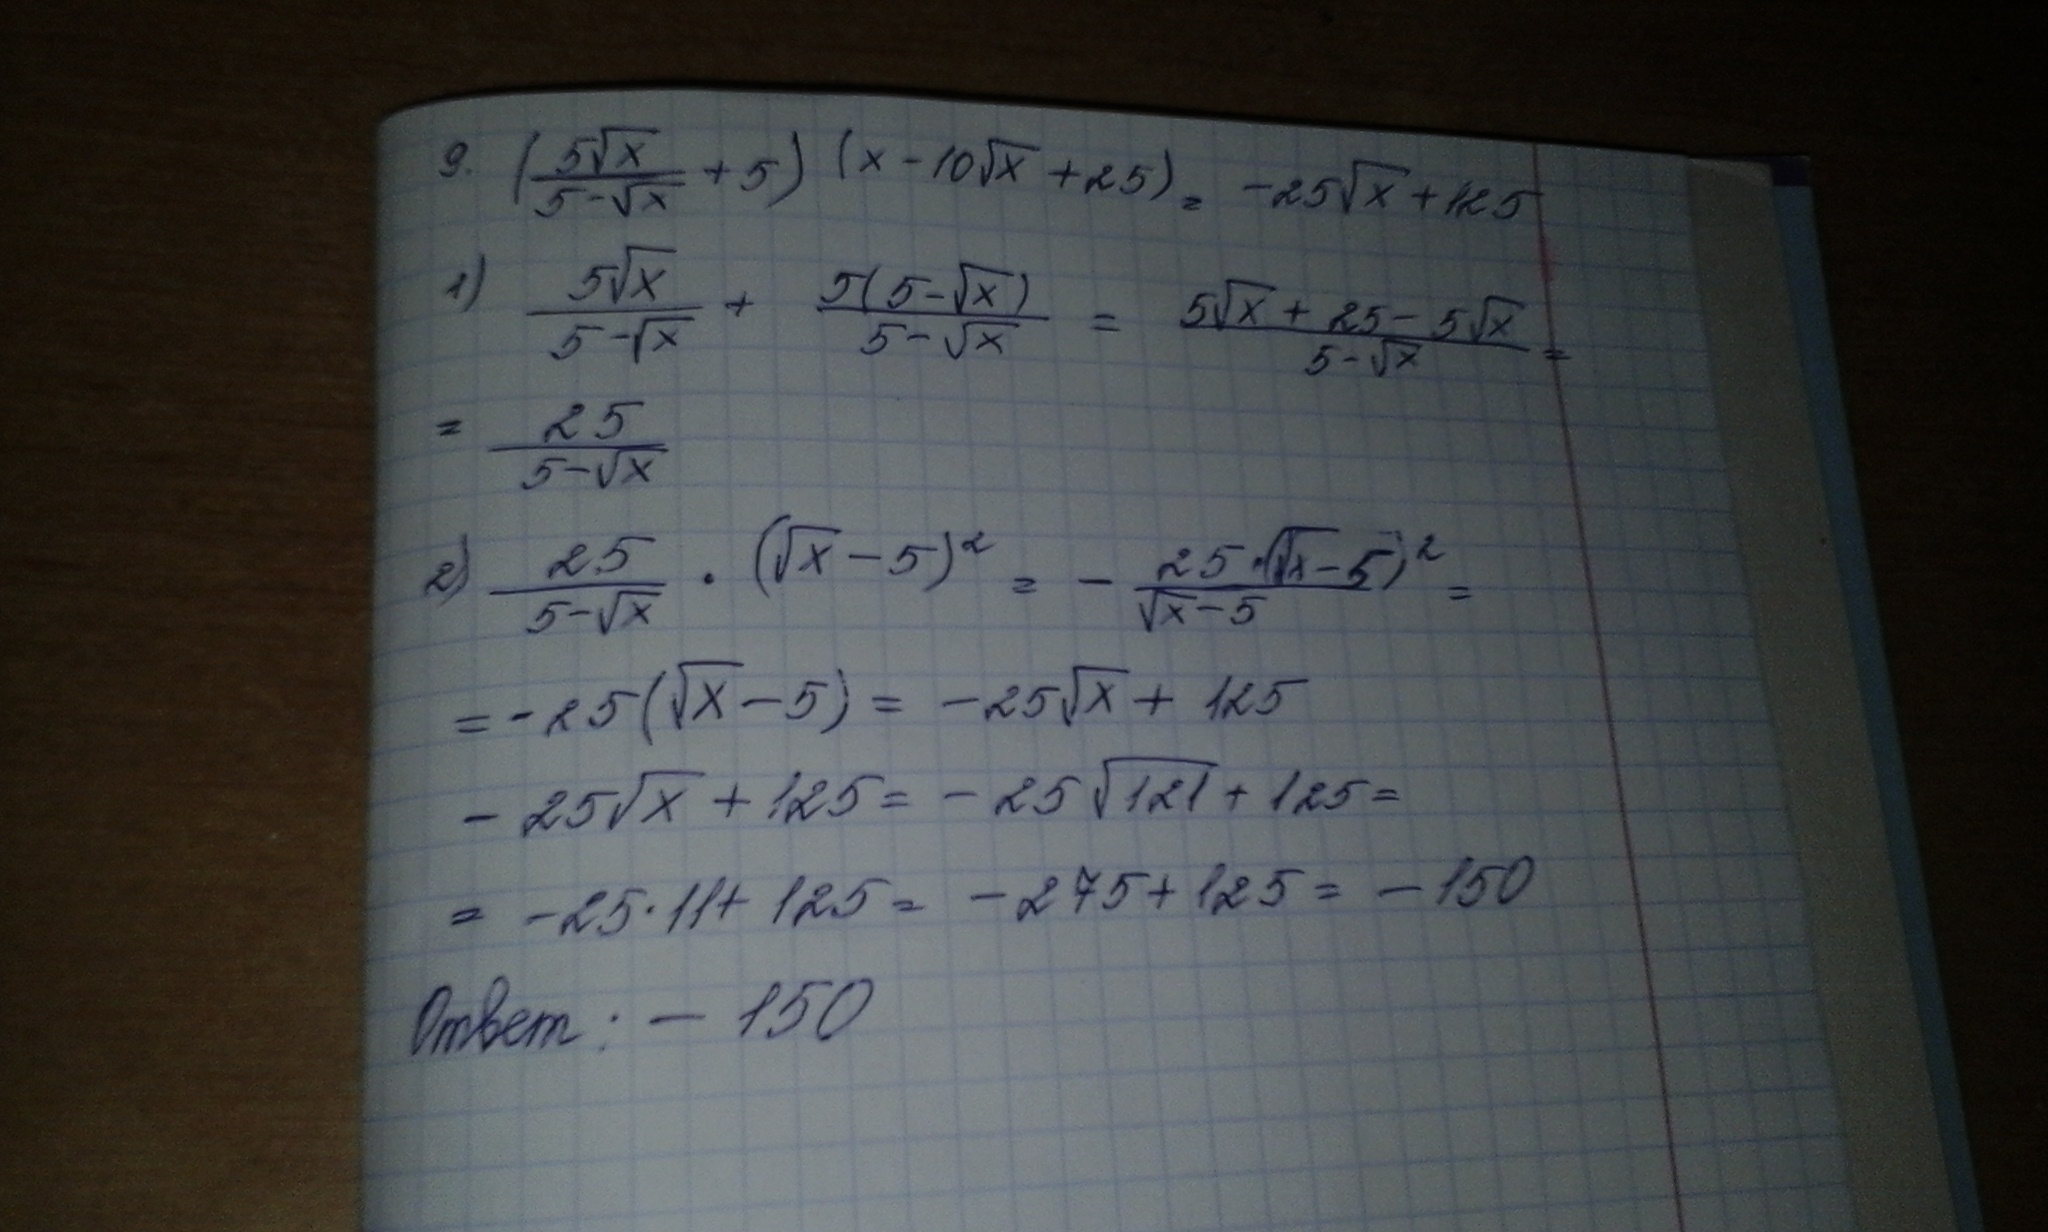 9. (5√x/(5-√x) + 5) (x - 10√x + 25) = -25√x + 125
1) 5√x/(5-√x) + 5(5-√x)/(5-√x) = (5√x + 25 - 5√x)/(5-√x) =
= 25/(5-√x)
2) 25/(5-√x) · (√x - 5)² = - 25·(√x-5)²/(√x-5) =
= -25(√x - 5) = -25√x + 125
- 25√x + 125 = - 25√121 + 125 =
= -25·11 + 125 = -275 + 125 = -150
Ответ: - 150